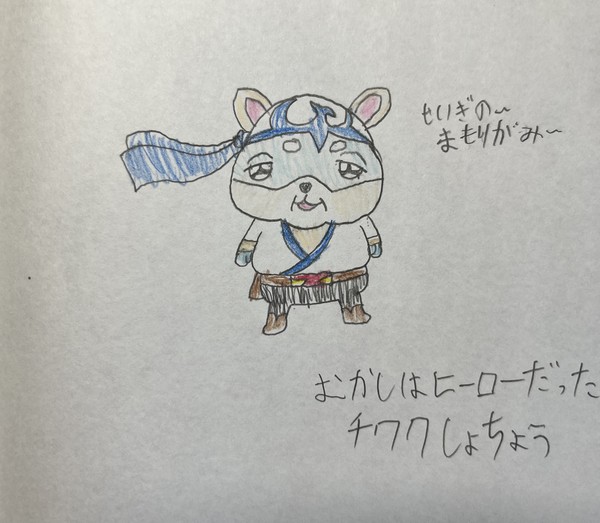 せいぎの～
まもりがみ～
むかしはヒーローだった
チワワしょちょう